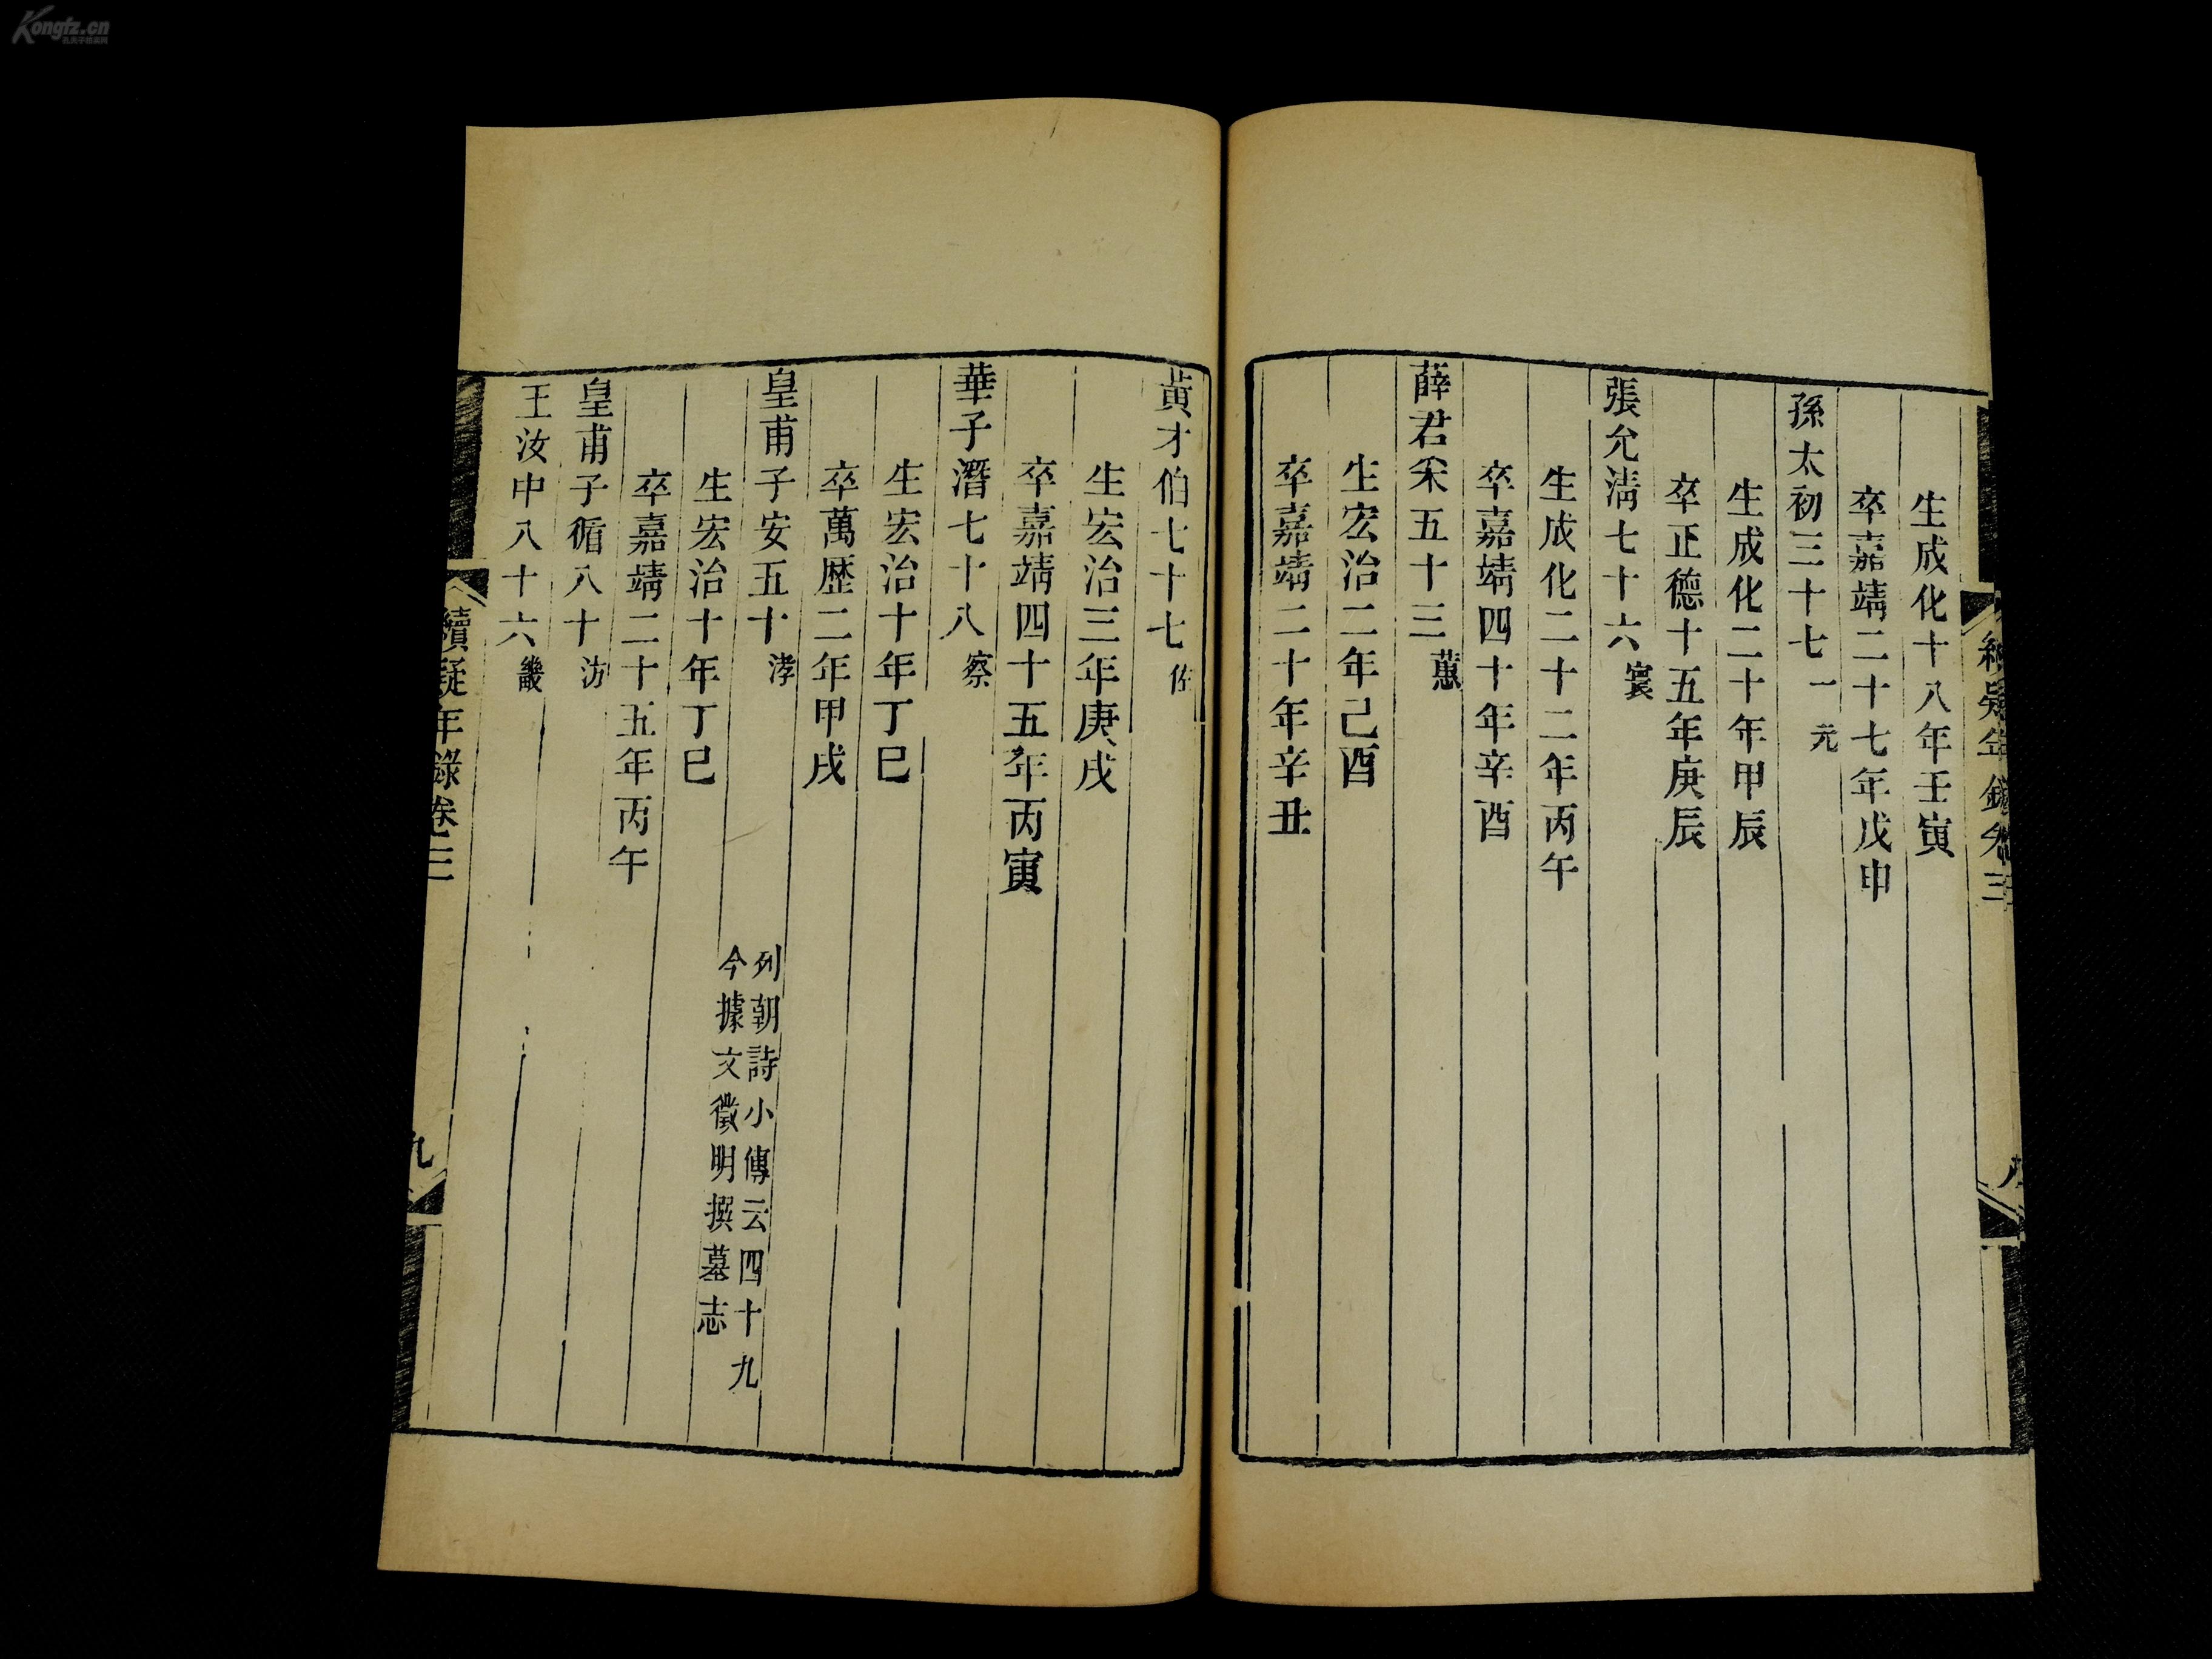 Kongfz.cn
孔夫子旧书网
生成化十八年壬寅
卒嘉靖二十七年戊申
孫太初三十七一元
生成化二十年甲辰
卒正德十五年庚辰
張允淸七十六寰
生成化二十二年丙午
卒嘉靖四十年辛酉
薛君采五十三蕙
生宏治二年己酉
卒嘉靖二十年辛丑
黃才伯七十七佐
生宏治三年庚戌
卒嘉靖四十五年丙寅
華子潛七十八察
生宏治十年丁巳
卒萬歷二年甲戌
皇甫子安五十涍
列朝詩小傳云四十九
今據文徵明撰墓志
生宏治十年丁巳
卒嘉靖二十五年丙午
皇甫子循八十汸
王汝中八十六畿
續疑年錄卷三
九